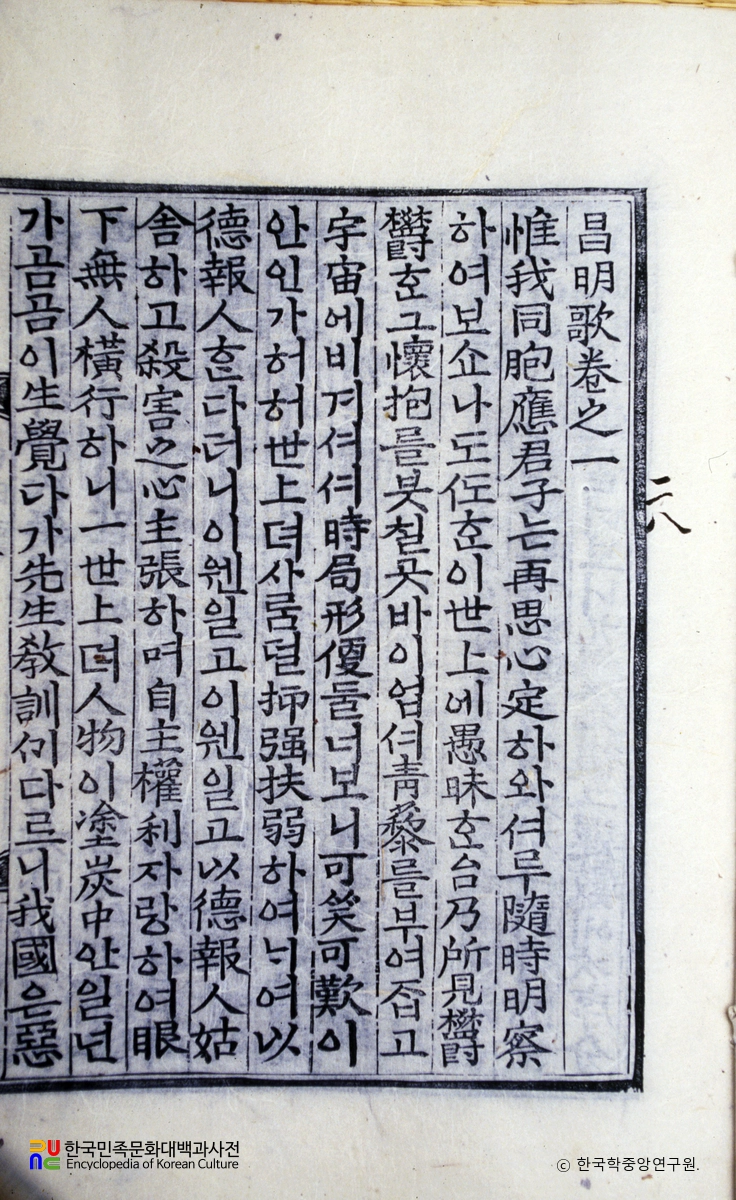 昌明歌卷之一
惟我同胞應君子는再思心定하와셔루隨時明察
하여보쇼나도伍호이世上에愚昧호台乃所見欝
欝호그懷抱를븟칠곳바이업셔靑藜를부여잡고
宇宙에비겨셔셔時局形便둘너보니可笑可歎이
안인가허허世上뎌사룸덜抑强扶弱하여너여以
德報人혼다더니이웬일고이웬일고以德報人姑
舍하고殺害之心主張하며自主權利자랑하여眼
下無人橫行하니一世上뎌人物이塗炭中안일넌
가곰곰이生覺다가先生敎訓신다르니我國은惡
二八
한국민족문화대백과사전
Encyclopedia of Korean Culture
ⓒ 한국학중앙연구원.